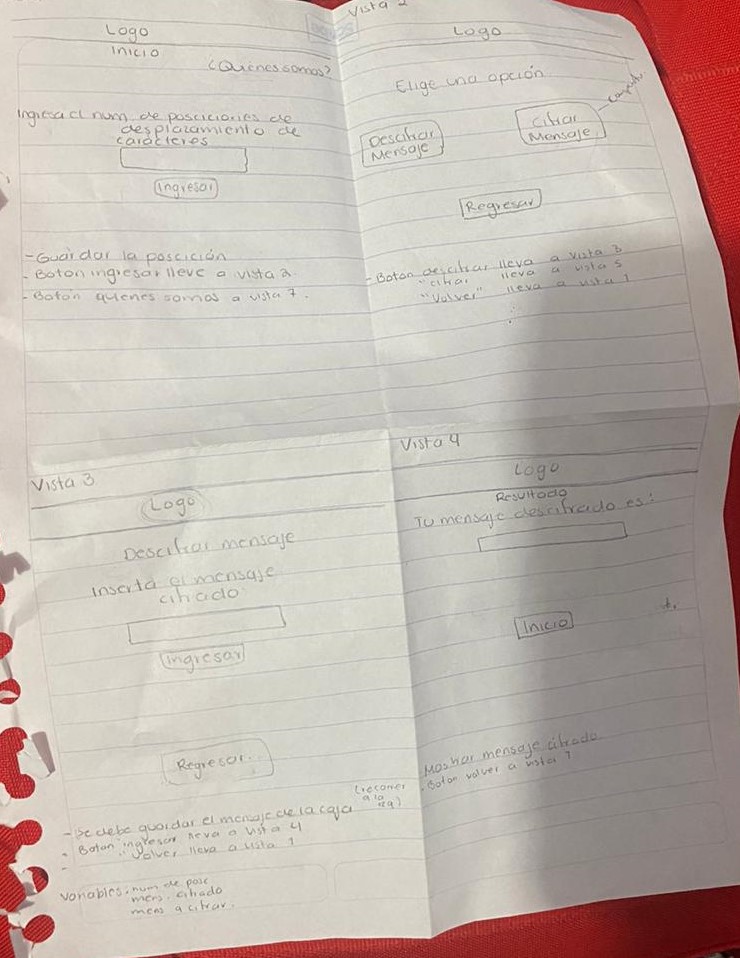 Logo
Inicio
¿Quienes somos?
Ingresa el num de posciciones de
desplazamiento de
caracteres
Ingresar
- Guardar la poscición
- Boton ingresar lleve a vista 2.
- Boton quienes somos a vista 7.
Vista 2
Logo
Elige una opción
Descifrar
Mensaje
Cifrar
Mensaje
Regresar
- Boton descifrar lleva a vista 3
"cifrar lleva a vista 5
"Volver" lleva a vista 1
Vista 3
Logo
Descifrar mensaje
Inserta el mensaje
cifrado
Ingresar
Regresar
(recorrer
a la
izq)
- Se debe guardar el mensaje de la caja
- Boton ingresar lleva a vista 4
- " Volver lleva a vista 1
Variables: num de posc
mens. cifrado
mens a cifrar.
Vista 4
Logo
Resultado
Tu mensaje descifrado es:
Inicio
Mostrar mensaje cifrado
- Boton volver a vista